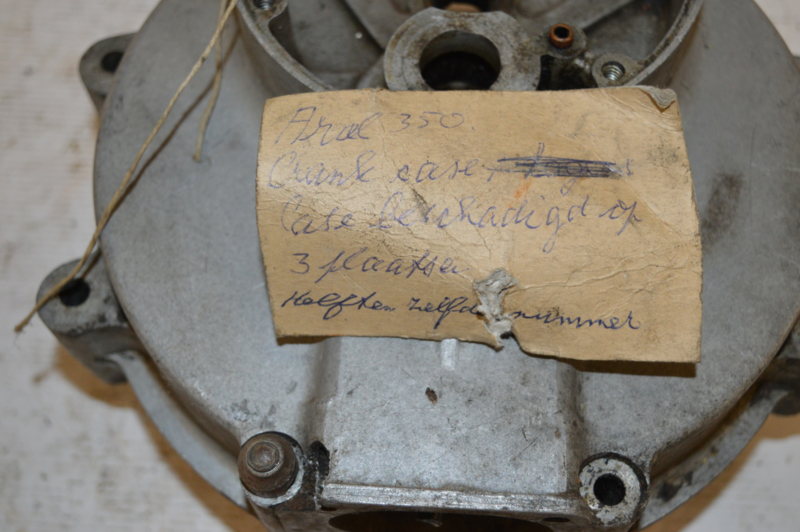 350.
Crank case
Case beschadigd op
3 plaatsen
Helften zelfde nummer